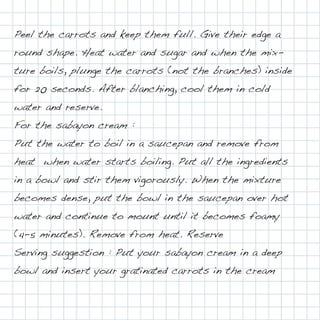 Peel the carrots and keep them full. Give their edge a
round shape. Heat water and sugar and when the mix-
ture boils, plunge the carrots (not the branches) inside
for 20 seconds. After blanching, cool them in cold
water and reserve.
For the sabayon cream :
Put the water to boil in a saucepan and remove from
heat when water starts boiling. Put all the ingredients
in a bowl and stir them vigorously. When the mixture
becomes dense, put the bowl in the saucepan over hot
water and continue to mount until it becomes foamy
(4-5 minutes). Remove from heat. Reserve
Serving suggestion : Put your sabayon cream in a deep
bowl and insert your gratinated carrots in the cream